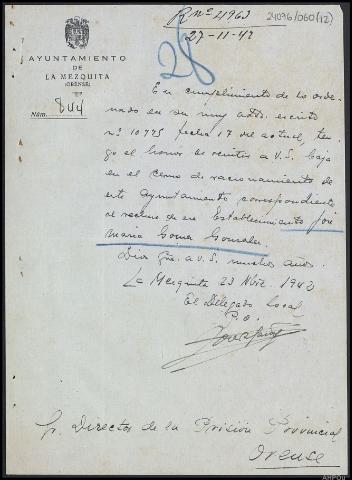 R nº 4963
27-11-42
24096/060(12)
28
AYUNTAMIENTO
DE
LA MEZQUITA
(ORENSE)
Núm. 844
En cumplimiento de lo orde-
nado en su muy atto. escrito
nº 10775 fecha 17 del actual, ten-
go el honor de remitir a V.S. baja
en el censo de racionamiento de
este Ayuntamiento correspondiente
al recluso de ese Establecimiento José
Maria Gomez Gonzalez.
Dios gue. a V.S. muchos años.
La Mezquita 23 Nbre. 1942
El Delegado Local
P.O.
Sr. Director de la Prisión Provincial
Orense
AHPOu